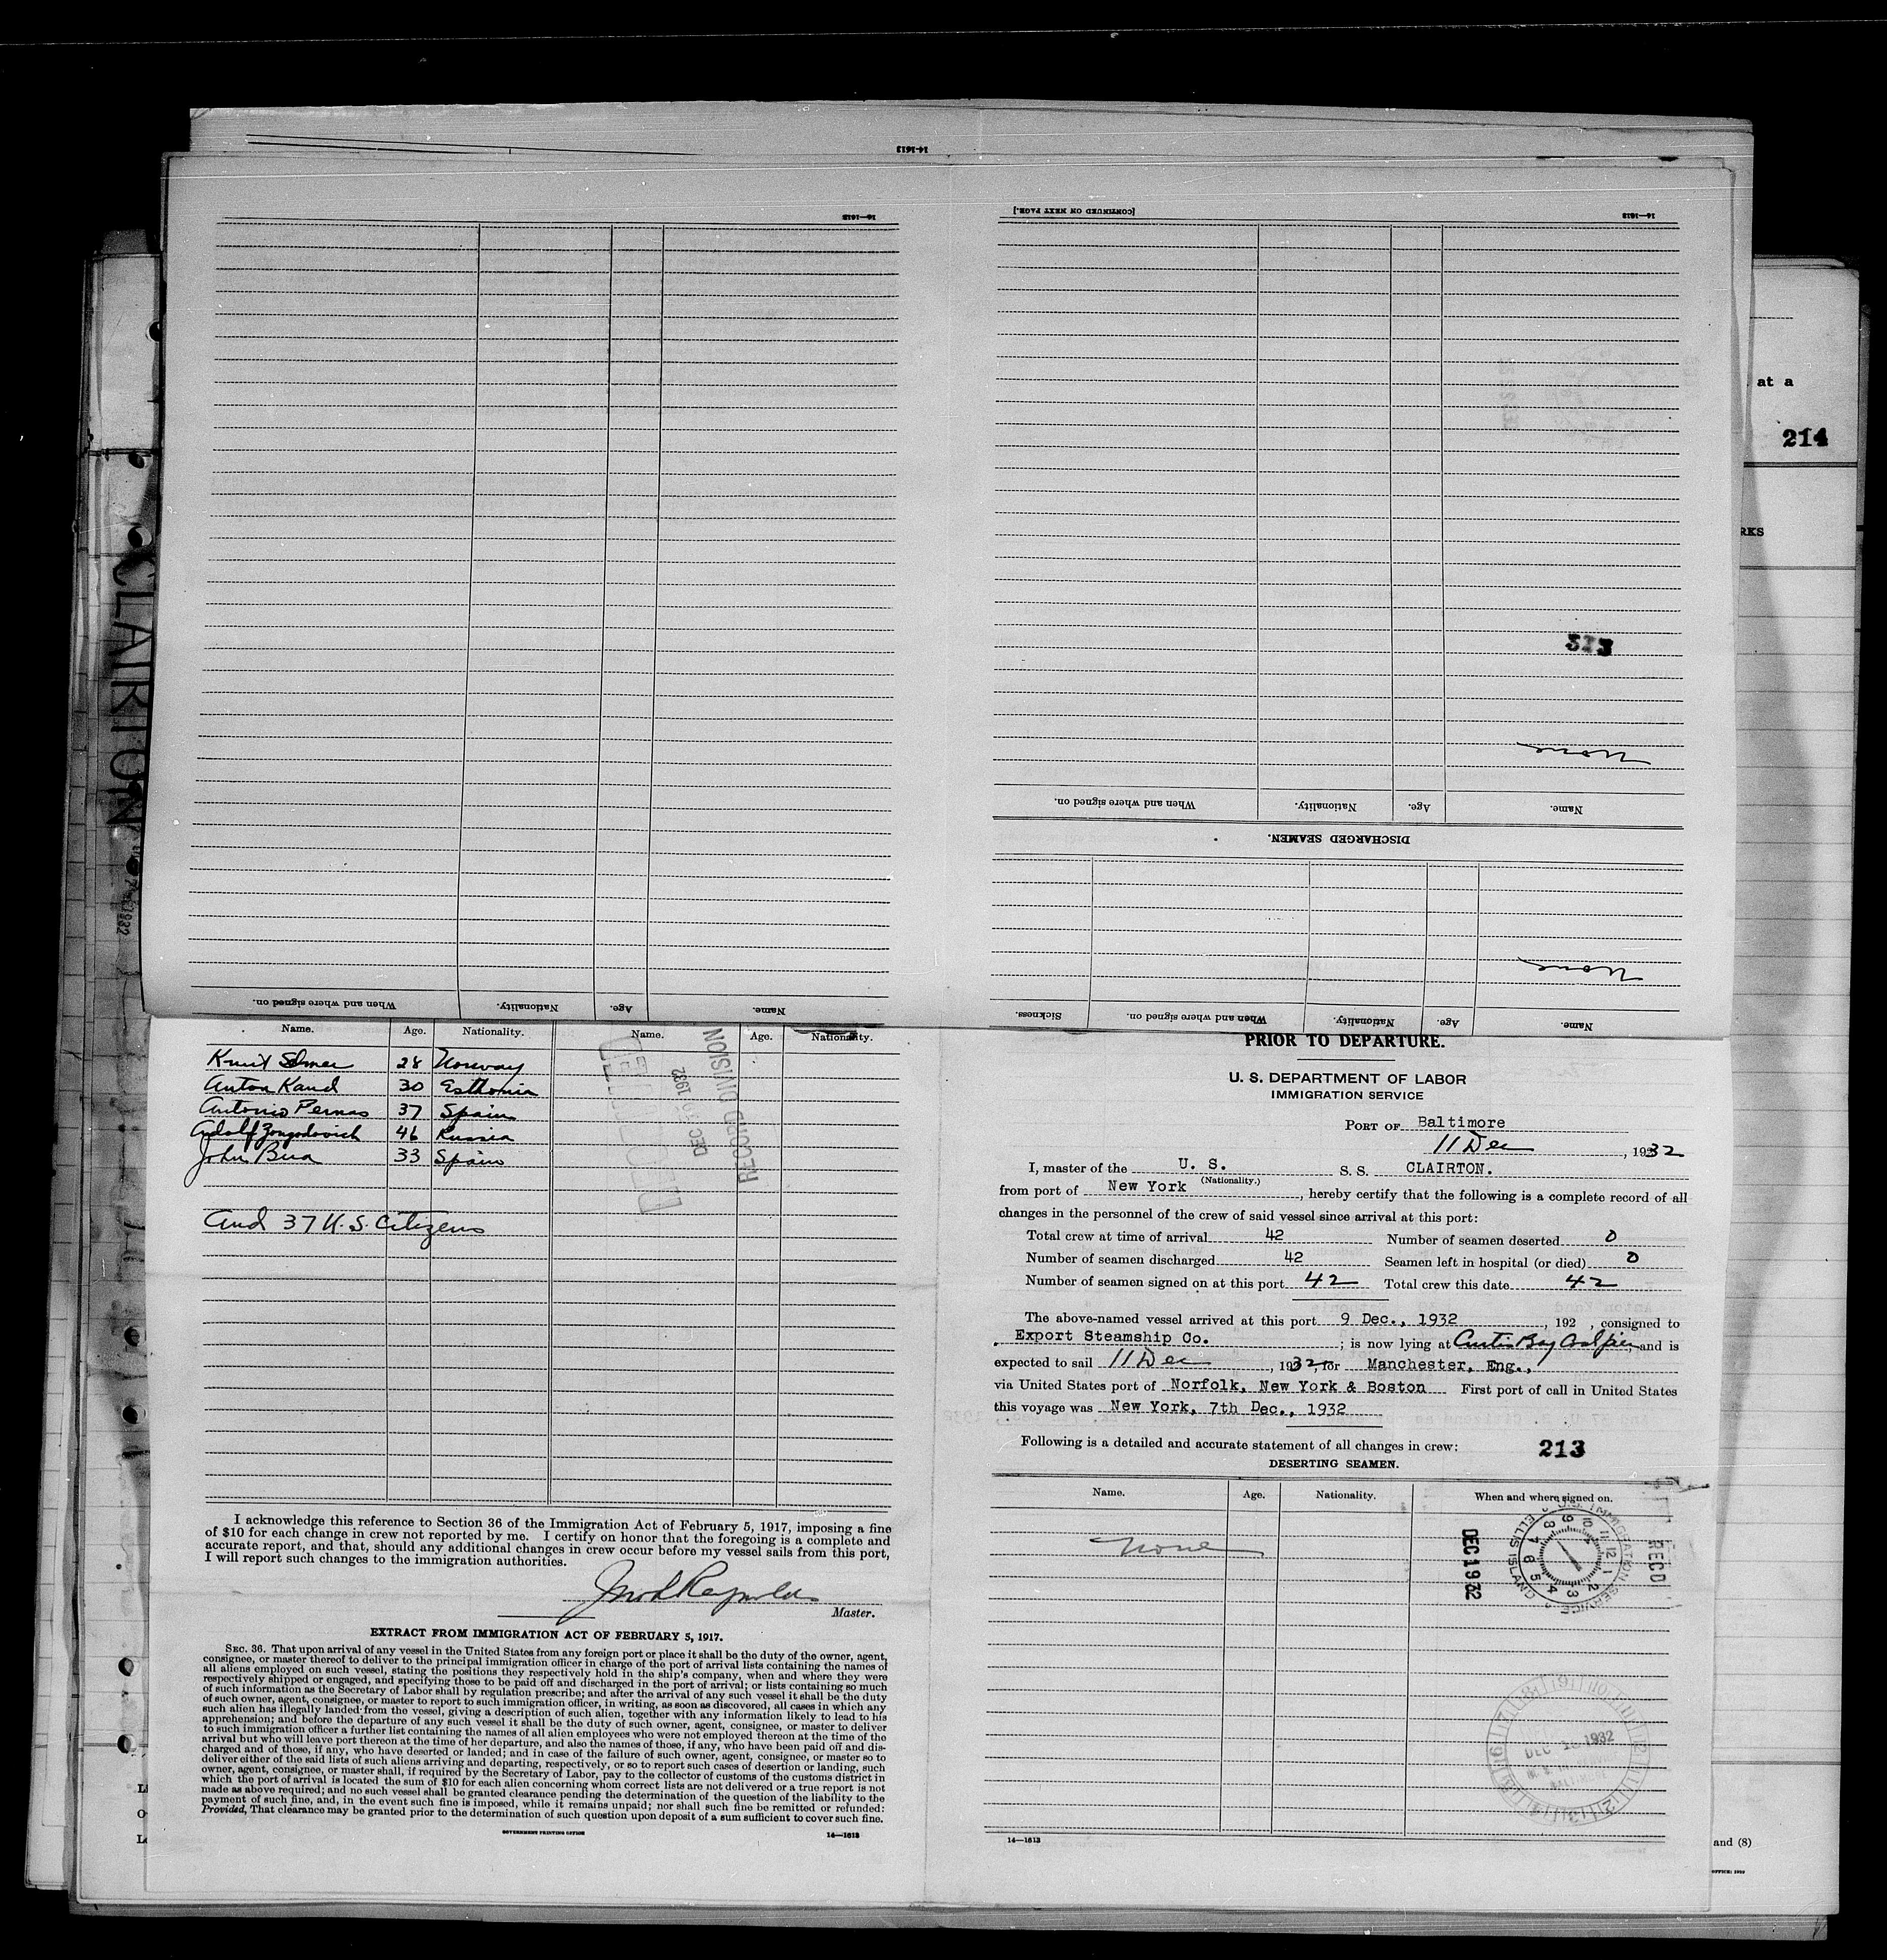 14-1613
16-1613
[CONTINUED ON NEXT PAGE.]
16-1613
at a
214
RKS
CLAIRTON
1932
None
When and where signed on.
Nationality.
Age.
Name.
DISCHARGED SEAMEN.
None
Sickness.
When and where signed on.
Nationality.
Age.
Name.
When and where signed on.
Nationality.
Age.
Name.
Name. Age. Nationality. Name. Age. Nationality.
Knut 28 Norway
Anton Kand 30 Esthonia
Antonio Pernas 37 Spain
Adolf 46 Russia
John 33 Spain
And 37 U.S. Citizens
RECEIVED
DEC 1932
RECORD DIVISION
I acknowledge this reference to Section 36 of the Immigration Act of February 5, 1917, imposing a fine
of $10 for each change in crew not reported by me. I certify on honor that the foregoing is a complete and
accurate report, and that, should any additional changes in crew occur before my vessel sails from this port,
I will report such changes to the immigration authorities.
Reynolds
Master.
EXTRACT FROM IMMIGRATION ACT OF FEBRUARY 5, 1917.
SEC. 36. That upon arrival of any vessel in the United States from any foreign port or place it shall be the duty of the owner, agent,
consignee, or master thereof to deliver to the principal immigration officer in charge of the port of arrival lists containing the names of
all aliens employed on such vessel, stating the positions they respectively hold in the ship's company, when and where they were
respectively shipped or engaged, and specifying those to be paid off and discharged in the port of arrival; or lists containing so much
of such information as the Secretary of Labor shall by regulation prescribe; and after the arrival of any such vessel it shall be the duty
of such owner, agent, consignee, or master to report to such immigration officer, in writing, as soon as discovered, all cases in which any
such alien has illegally landed from the vessel, giving a description of such alien, together with any information likely to lead to his
apprehension; and before the departure of any such vessel it shall be the duty of such owner, agent, consignee, or master to deliver
to such immigration officer a further list containing the names of all alien employees who were not employed thereon at the time of the
arrival but who will leave port thereon at the time of her departure, and also the names of those, if any, who have been paid off and dis-
charged and of those, if any, who have deserted or landed; and in case of the failure of such owner, agent, consignee, or master so to
deliver either of the said lists of such aliens arriving and departing, respectively, or so to report such cases of desertion or landing, such
owner, agent, consignee, or master shall, if required by the Secretary of Labor, pay to the collector of customs of the customs district in
which the port of arrival is located the sum of $10 for each alien concerning whom correct lists are not delivered or a true report is not
made as above required; and no such vessel shall be granted clearance pending the determination of the question of the liability to the
payment of such fine, and, in the event such fine is imposed, while it remains unpaid; nor shall such fine be remitted or refunded:
Provided, That clearance may be granted prior to the determination of such question upon deposit of a sum sufficient to cover such fine.
GOVERNMENT PRINTING OFFICE 14-1613
PRIOR TO DEPARTURE.
U. S. DEPARTMENT OF LABOR
IMMIGRATION SERVICE
PORT OF Baltimore
11 Dec, 1932
I, master of the U. S. S. S. CLAIRTON.
(Nationality.)
from port of New York, hereby certify that the following is a complete record of all
changes in the personnel of the crew of said vessel since arrival at this port:
Total crew at time of arrival 42 Number of seamen deserted 0
Number of seamen discharged 42 Seamen left in hospital (or died) 0
Number of seamen signed on at this port 42 Total crew this date 42
The above-named vessel arrived at this port 9 Dec., 1932, 192 , consigned to
Export Steamship Co. ; is now lying at Curtis Bay Coal pier, and is
expected to sail 11 Dec, 1932, for Manchester, Eng.,
via United States port of Norfolk, New York & Boston First port of call in United States
this voyage was New York, 7th Dec., 1932
Following is a detailed and accurate statement of all changes in crew: 213
DESERTING SEAMEN.
Name. Age. Nationality. When and where signed on.
None
U.S. IMMIGRATION SERVICE
ELLIS ISLAND
REC'D
1932
BALTIMORE
14-1613
and (8)